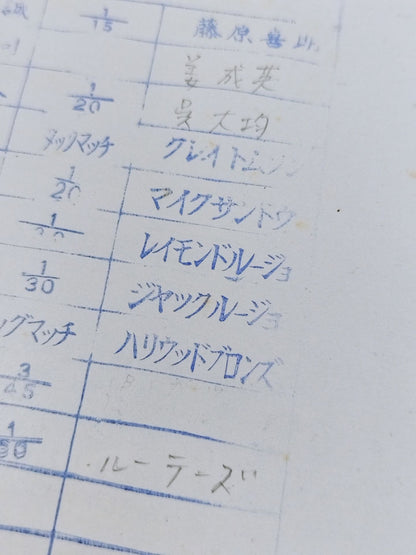 1/15 藤原
姜成英
1/20 呉大均
タッグマッチ クレイトムソン
1/20 マイクサンドウ
レイモンドルージョ
1/30 ジャックルージョ
ッグマッチ ハリウッドブロンズ
3/45
ルーテーズ